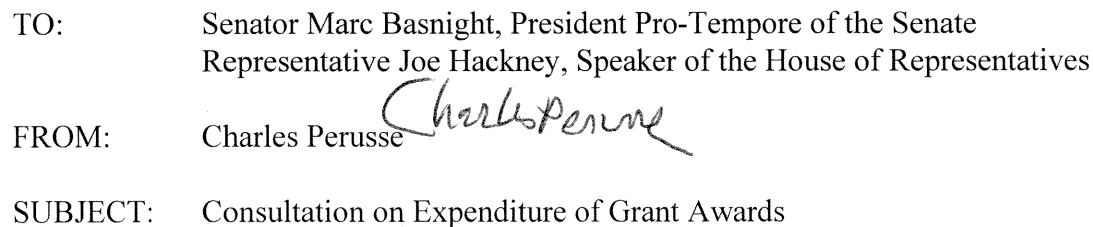 TO: Senator Marc Basnight, President Pro-Tempore of the Senate
Representative Joe Hackney, Speaker of the House of Representatives
Charles Perusse
FROM: Charles Perusse
SUBJECT: Consultation on Expenditure of Grant Awards